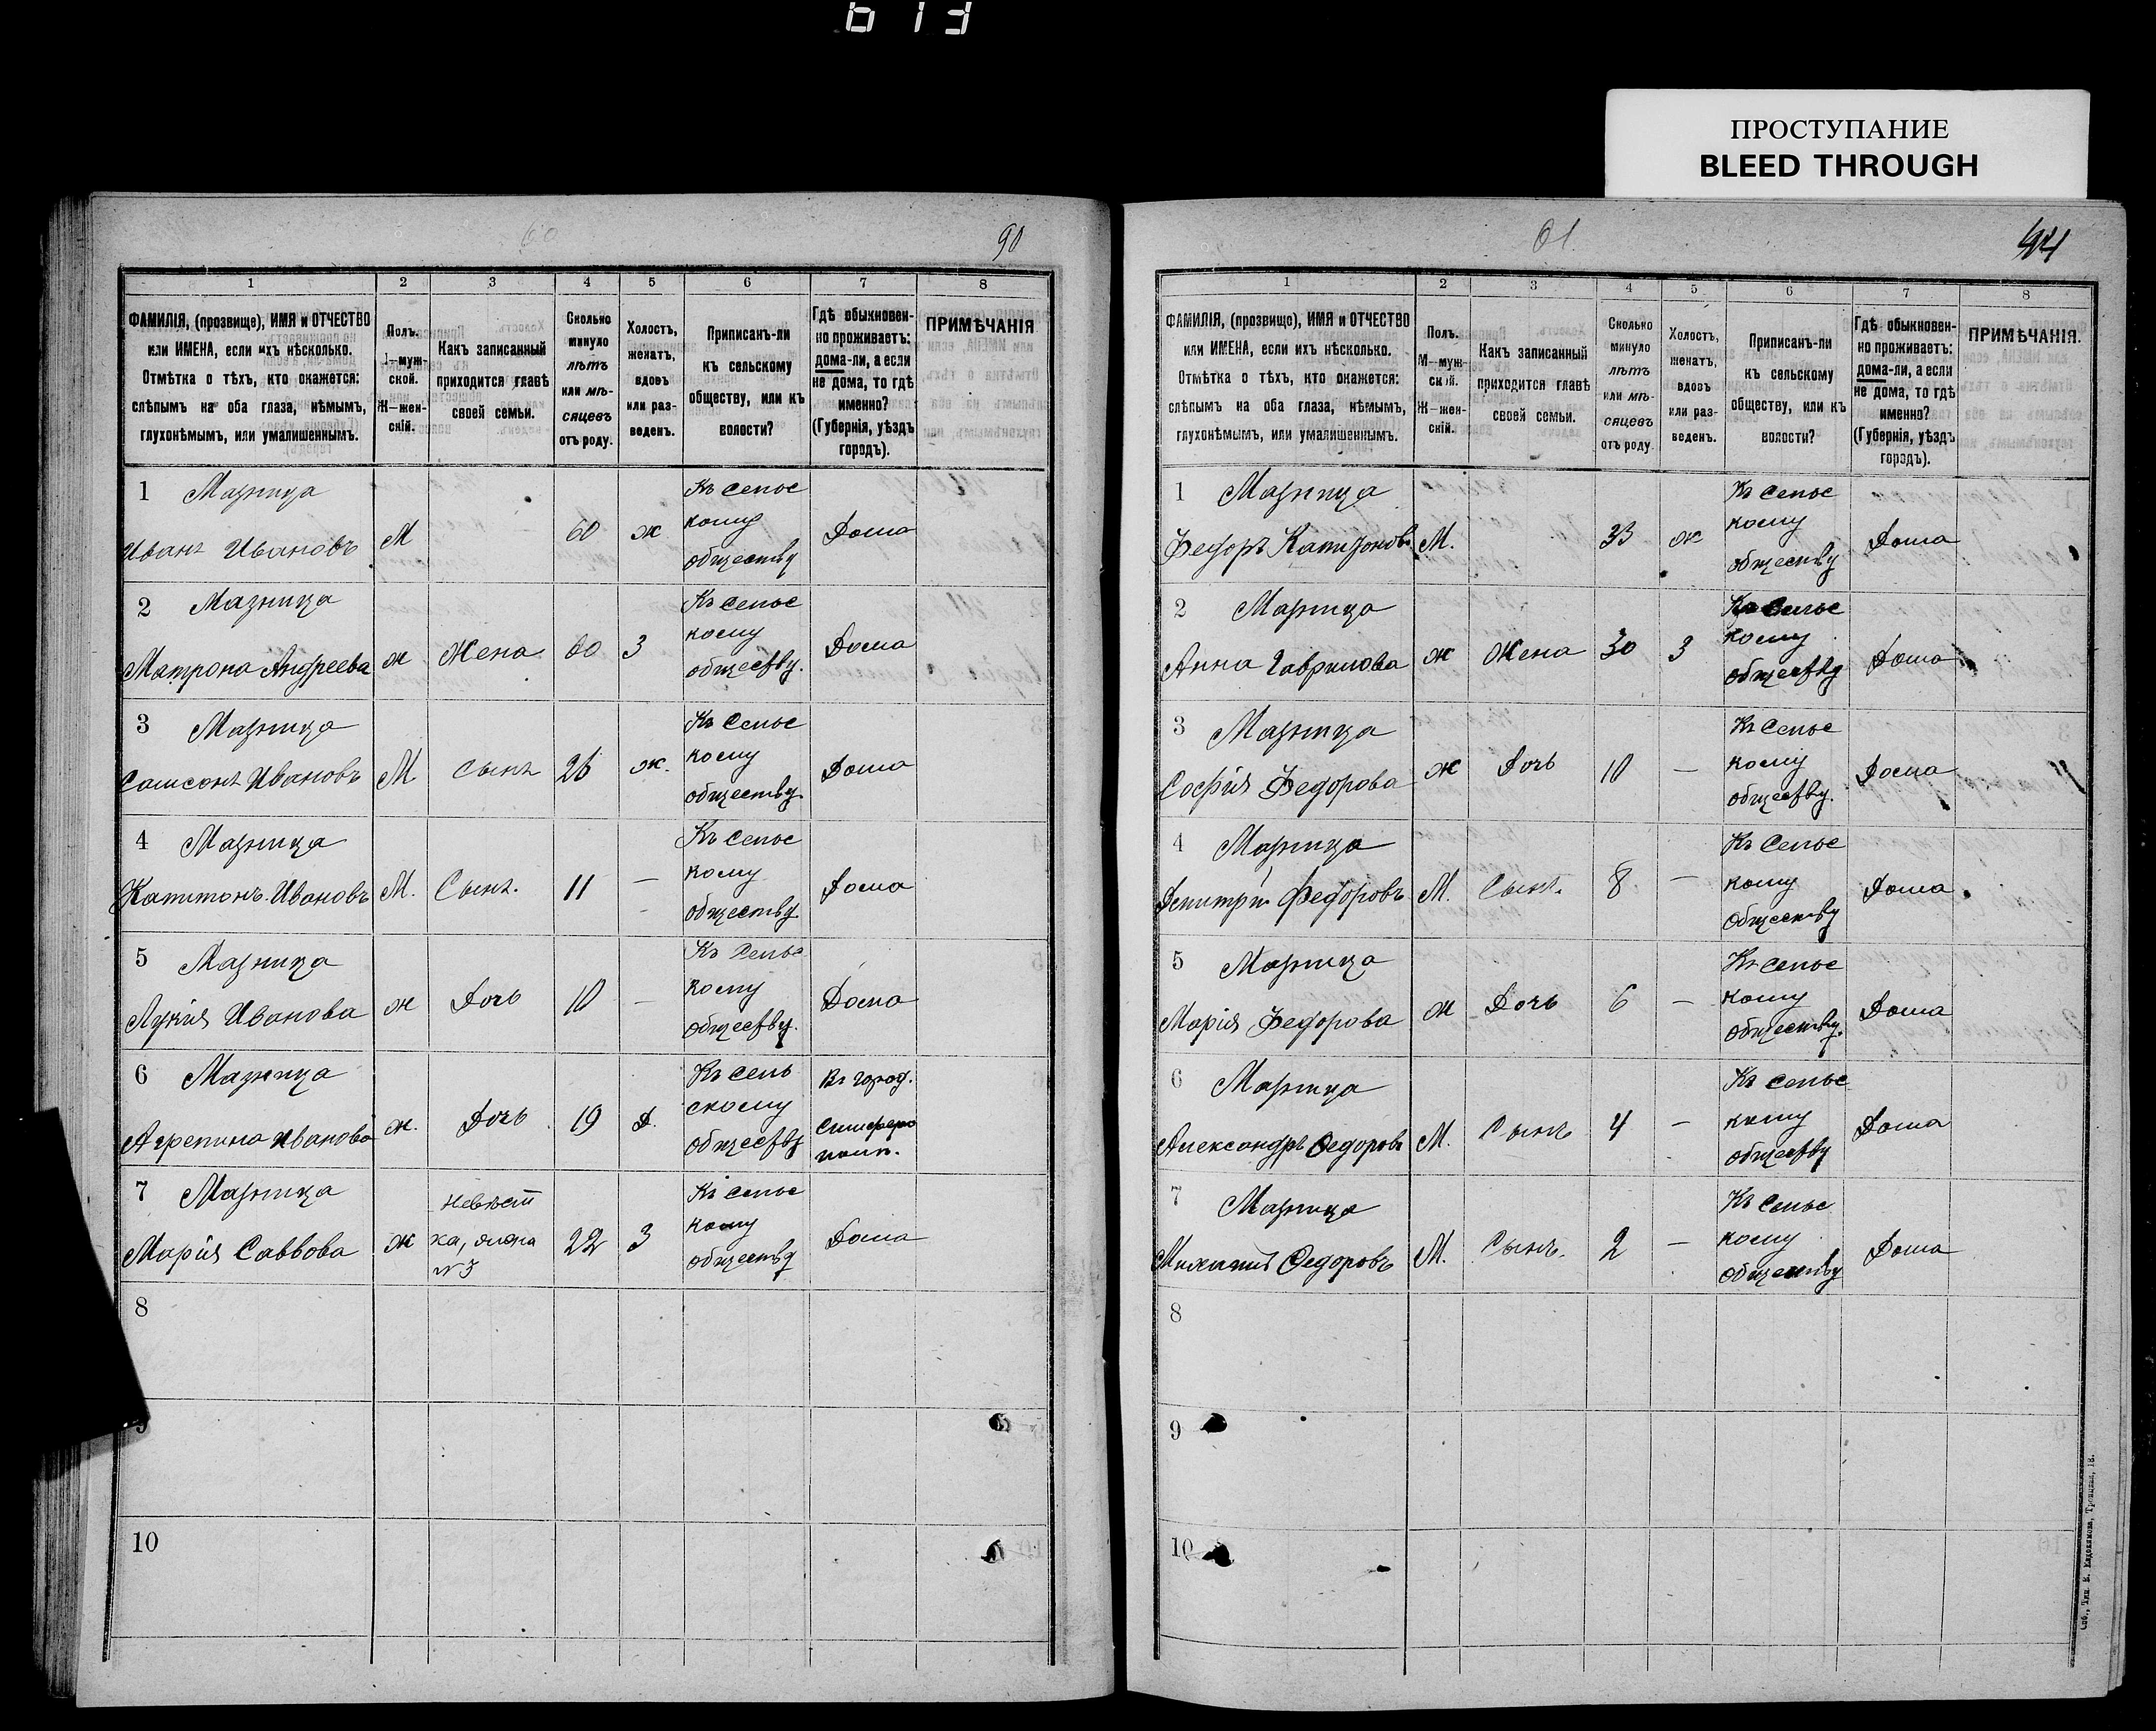 613
ПРОСТУПАНИЕ
BLEED THROUGH
60
90
1 2 3 4 5 6 7 8
ФАМИЛІЯ, (прозвище), ИМЯ и ОТЧЕСТВО
или ИМЕНА, если ихъ нѣсколько.
Отмѣтка о тѣхъ, кто окажется:
слѣпымъ на оба глаза, нѣмымъ,
глухонѣмымъ, или умалишеннымъ.
Полъ.
М—муж-
ской.
Ж—жен-
скій.
Какъ записанный
приходится главѣ
своей семьи.
Сколько
минуло
лѣтъ
или мѣ-
сяцевъ
отъ роду.
Холостъ,
женатъ,
вдовъ
или раз-
веденъ.
Приписанъ-ли
къ сельскому
обществу, или къ
волости?
Гдѣ обыкновен-
но проживаетъ:
дома-ли, а если
не дома, то гдѣ
именно?
(Губернія, уѣздъ
городъ).
ПРИМѢЧАНІЯ
1 Мазница
Иванъ Ивановъ
М
60
ж
Къ сельс
кому
обществу
Дома
2 Мазница
Матрона Андреева
ж
Жена
60
З
Къ сельс
кому
обществу.
Дома
3 Мазница
Самсонъ Ивановъ
М
сынъ
26
ж.
Къ сельс
кому
обществу
Дома
4 Мазница
Капитонъ Ивановъ
М.
Сынъ.
11
—
Къ сельс
кому
обществу
Дома
5 Мазница
Лукія Иванова
ж
Дочь
10
—
Къ сельс
кому
обществу.
Дома
6 Мазница
Агрепина Иванова
ж.
Дочь
19
Д.
Къ сель
скому
обществу
Въ город.
Симферо
поль.
7 Мазница
Марія Саввова
ж
невѣст
ка, жена
№3
22
З
Къ сельс
кому
обществу
Дома
8
9
10
61
1 2 3 4 5 6 7 8
ФАМИЛІЯ, (прозвище), ИМЯ и ОТЧЕСТВО
или ИМЕНА, если ихъ нѣсколько.
Отмѣтка о тѣхъ, кто окажется:
слѣпымъ на оба глаза, нѣмымъ,
глухонѣмымъ, или умалишеннымъ.
Полъ.
М—муж-
ской.
Ж—жен-
скій.
Какъ записанный
приходится главѣ
своей семьи.
Сколько
минуло
лѣтъ
или мѣ-
сяцевъ
отъ роду.
Холостъ,
женатъ,
вдовъ
или раз-
веденъ.
Приписанъ-ли
къ сельскому
обществу, или къ
волости?
Гдѣ обыкновен-
но проживаетъ:
дома-ли, а если
не дома, то гдѣ
именно?
(Губернія, уѣздъ
городъ).
ПРИМѢЧАНІЯ.
1 Мазница
Федоръ Капитоновъ
М.
33
ж
Къ сельс
кому
обществу
Дома
2 Мазница
Анна Гаврилова
ж
Жена
30
З
Къ сельс
кому
обществу
Дома
3 Мазница
Софія Федорова
ж
Дочь
10
—
Къ сельс
кому
обществу.
Дома
4 Мазница
Дмитрій Федоровъ
М.
Сынъ.
8
—
Къ сельс
кому
обществу
Дома
5 Мазница
Марія Федорова
ж
Дочь
6
—
Къ сельс
кому
обществу.
Дома
6 Мазница
Александръ Федоровъ
М.
Сынъ
4
—
Къ сельс
кому
обществу
Дома
7 Мазница
Михаилъ Федоровъ
М.
Сынъ.
2
—
Къ сельс
кому
обществу
Дома
8
9
10
Спб., Тип. Е. Евдокимова, Троицкая, 18.